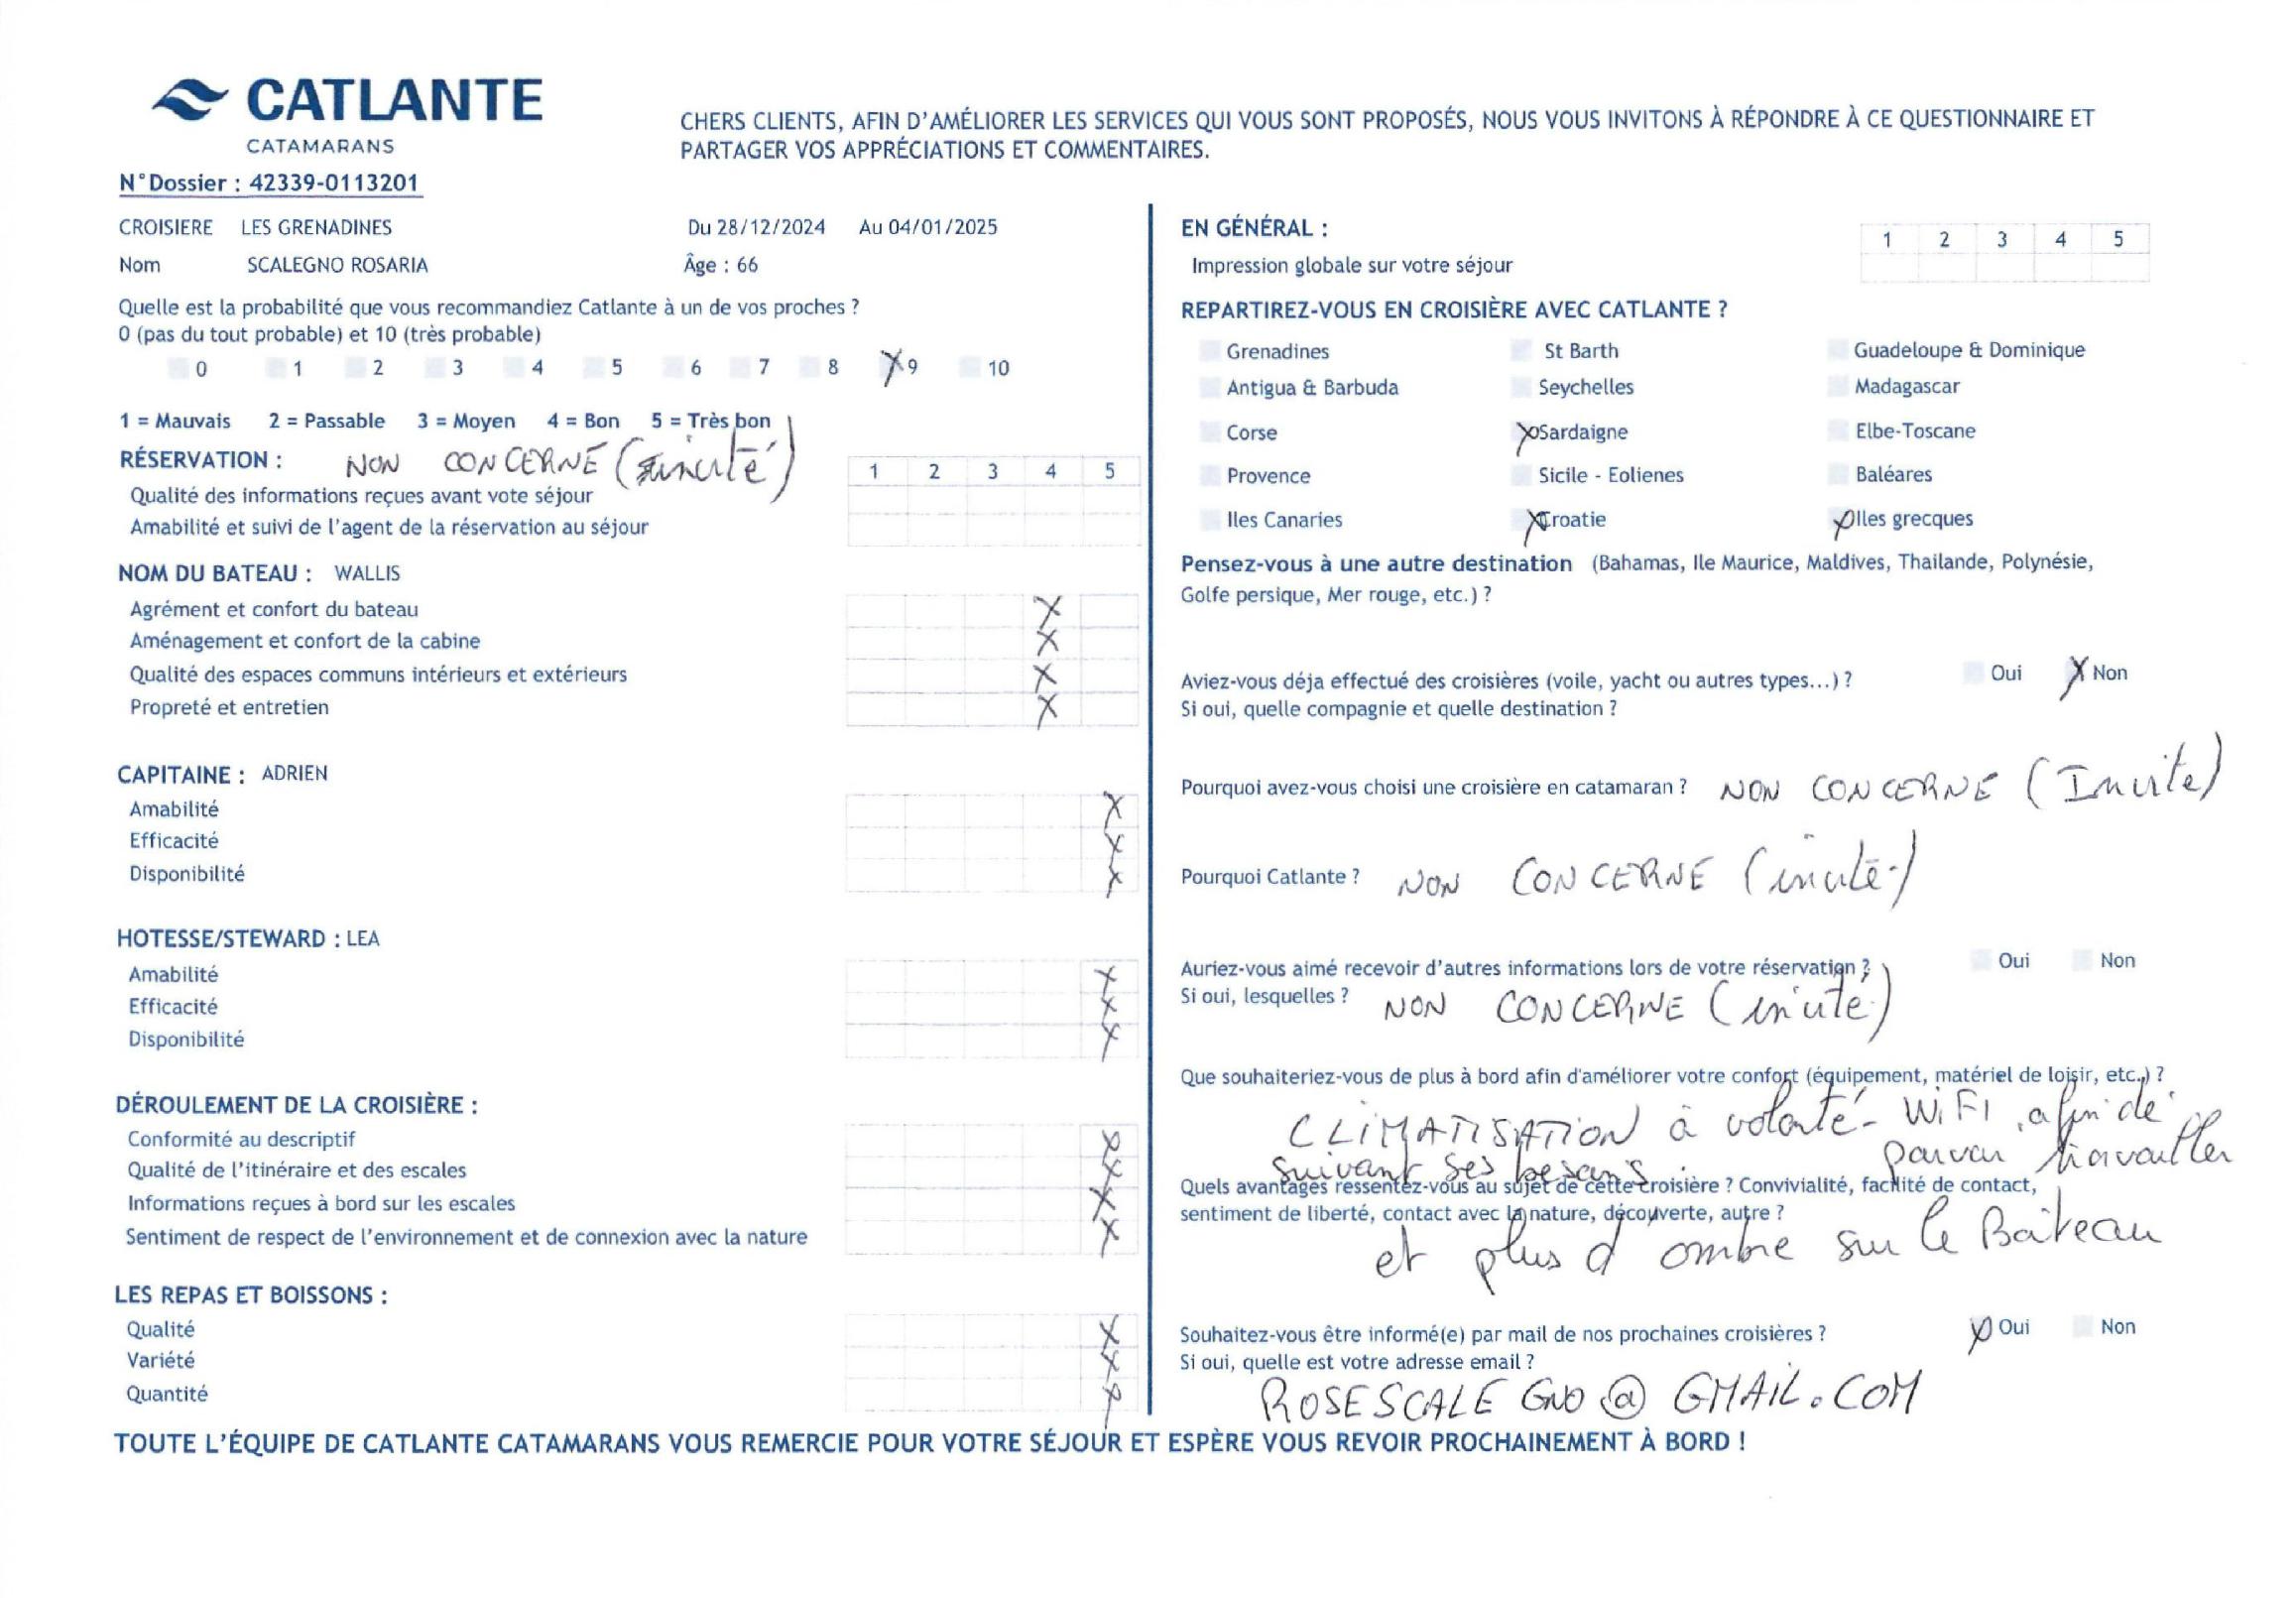 CATLANTE
CATAMARANS
CHERS CLIENTS, AFIN D'AMÉLIORER LES SERVICES QUI VOUS SONT PROPOSÉS, NOUS VOUS INVITONS À RÉPONDRE À CE QUESTIONNAIRE ET
PARTAGER VOS APPRÉCIATIONS ET COMMENTAIRES.
N°Dossier : 42339-0113201
CROISIERE LES GRENADINES Du 28/12/2024 Au 04/01/2025
Nom SCALEGNO ROSARIA Âge : 66
Quelle est la probabilité que vous recommandiez Catlante à un de vos proches ?
0 (pas du tout probable) et 10 (très probable)
0 1 2 3 4 5 6 7 8 X 9 10
1 = Mauvais 2 = Passable 3 = Moyen 4 = Bon 5 = Très bon
RÉSERVATION : NON CONCERNÉ (invité)
1 2 3 4 5
Qualité des informations reçues avant vote séjour
Amabilité et suivi de l'agent de la réservation au séjour
NOM DU BATEAU : WALLIS
Agrément et confort du bateau X
Aménagement et confort de la cabine X
Qualité des espaces communs intérieurs et extérieurs X
Propreté et entretien X
CAPITAINE : ADRIEN
Amabilité X
Efficacité X
Disponibilité X
HOTESSE/STEWARD : LEA
Amabilité X
Efficacité X
Disponibilité X
DÉROULEMENT DE LA CROISIÈRE :
Conformité au descriptif X
Qualité de l'itinéraire et des escales X
Informations reçues à bord sur les escales X
Sentiment de respect de l'environnement et de connexion avec la nature X
LES REPAS ET BOISSONS :
Qualité X
Variété X
Quantité X
EN GÉNÉRAL :
1 2 3 4 5
Impression globale sur votre séjour
REPARTIREZ-VOUS EN CROISIÈRE AVEC CATLANTE ?
Grenadines St Barth Guadeloupe & Dominique
Antigua & Barbuda Seychelles Madagascar
Corse X Sardaigne Elbe-Toscane
Provence Sicile - Eolienes Baléares
Iles Canaries X Croatie X Iles grecques
Pensez-vous à une autre destination (Bahamas, Ile Maurice, Maldives, Thailande, Polynésie,
Golfe persique, Mer rouge, etc.) ?
Aviez-vous déja effectué des croisières (voile, yacht ou autres types...) ? Oui X Non
Si oui, quelle compagnie et quelle destination ?
Pourquoi avez-vous choisi une croisière en catamaran ? NON CONCERNÉ (Invité)
Pourquoi Catlante ? NON CONCERNÉ (invité)
Auriez-vous aimé recevoir d'autres informations lors de votre réservation ? Oui Non
Si oui, lesquelles ? NON CONCERNE (invité)
Que souhaiteriez-vous de plus à bord afin d'améliorer votre confort (équipement, matériel de loisir, etc.) ?
CLIMATISATION à volonté - WiFI, afin de
suivant ses besoins pouvoir travailler
Quels avantages ressentez-vous au sujet de cette croisière ? Convivialité, facilité de contact,
sentiment de liberté, contact avec la nature, découverte, autre ?
et plus d'ombre sur le Bâteau
Souhaitez-vous être informé(e) par mail de nos prochaines croisières ? X Oui Non
Si oui, quelle est votre adresse email ?
ROSESCALEGNO@GMAIL.COM
TOUTE L'ÉQUIPE DE CATLANTE CATAMARANS VOUS REMERCIE POUR VOTRE SÉJOUR ET ESPÈRE VOUS REVOIR PROCHAINEMENT À BORD !